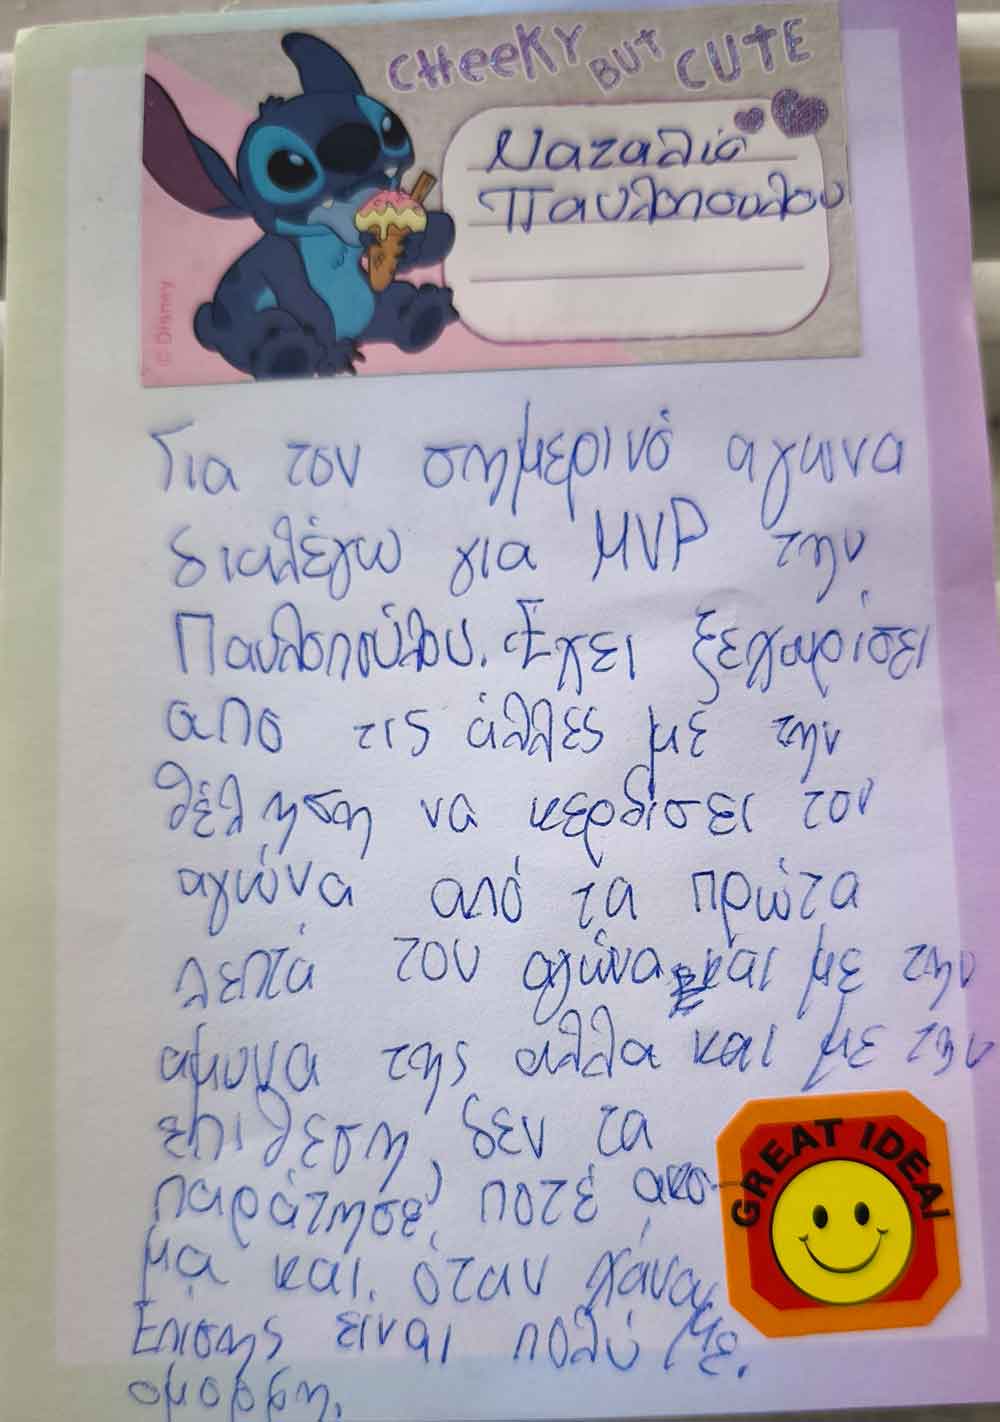 CHEEKY BUT CUTE
Ναταλία
Παυλοπουλου
© Disney
Για τον σημερινό αγωνα
διαλέγω για MVP την
Παυλοπούλου. Έχει ξεχωρίσει
απο τις άλλες με την
θέληση να κερδίσει τον
αγώνα από τα πρώτα
λεπτά του αγώνα και με την
αμυνα της αλλα και με την
επιθεση, δεν τα
παράτησε ποτέ ακο-
μα και όταν χάναμε.
Επισης ειναι πολύ
ομορφη.
GREAT IDEA!